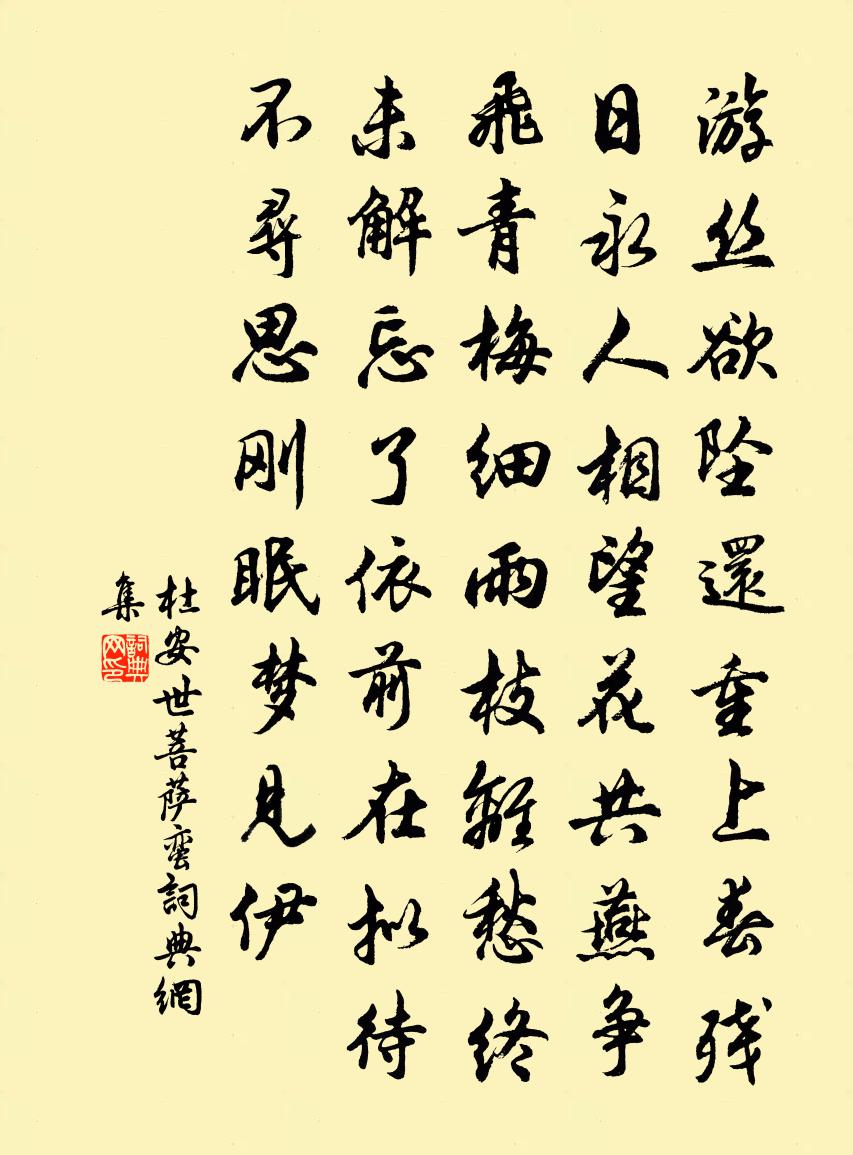 游丝欲坠還重上春残
日永人相望花共燕争
飛青梅细雨枝離愁终
未解忘了依前在拟待
不尋思刚眠梦見伊
杜安世菩萨蛮詞典網
集
詞典
网印